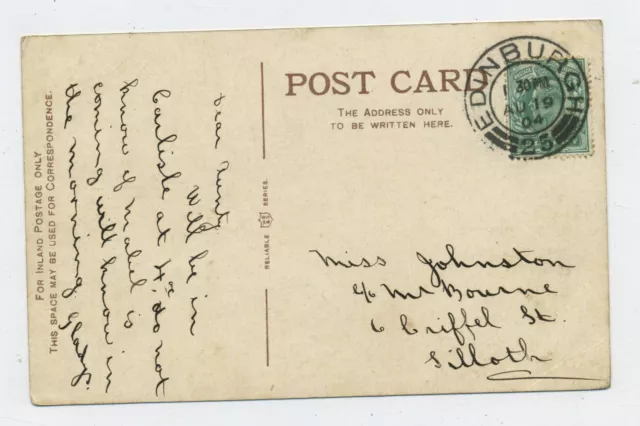 FOR INLAND POSTAGE ONLY
THIS SPACE MAY BE USED FOR CORRESPONDENCE.
Dear Aunty
Will be in
Carlisle at 4 do not
know if Mabel is
coming will know in
the morning. Gladys.
RELIABLE SERIES.
POST CARD
THE ADDRESS ONLY
TO BE WRITTEN HERE.
EDINBURGH
30PM
AU 19
04
25
Miss Johnston
c/o Mr Bourne
6 Criffel St.
Silloth